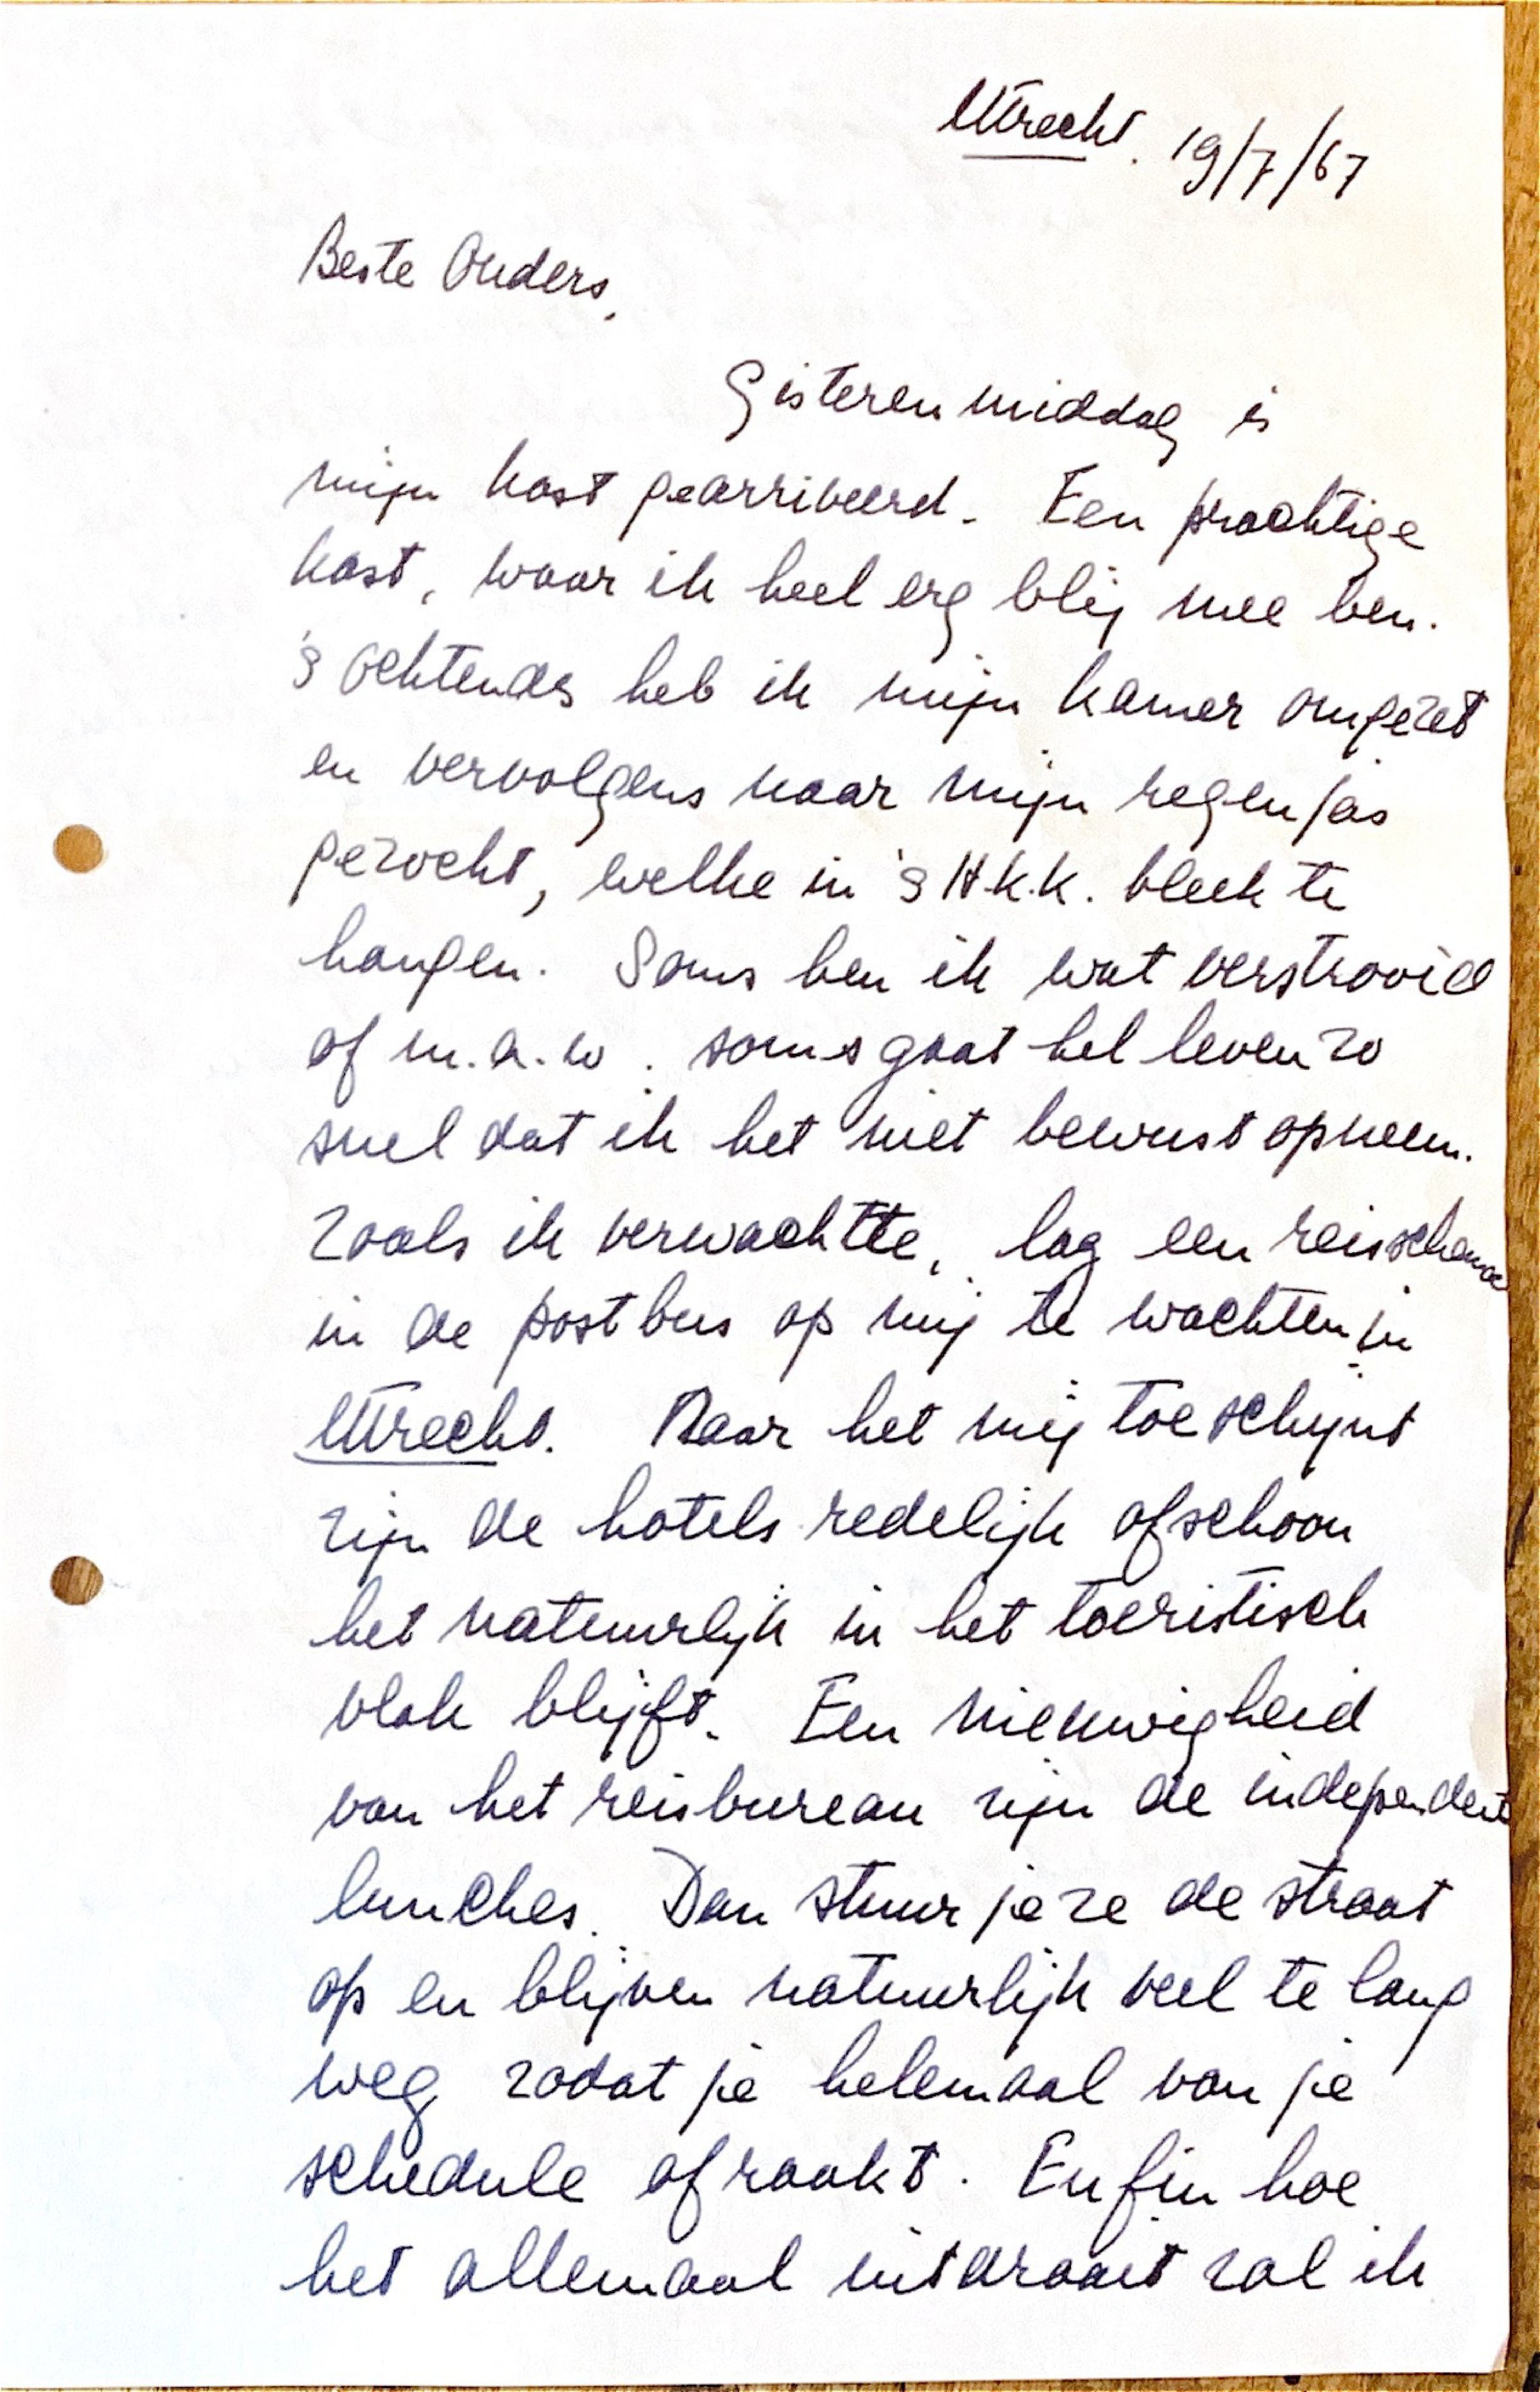 Utrecht. 19/7/67
Beste Ouders,
Gisterenmiddag is
mijn kast gearriveerd. Een prachtige
kast, waar ik heel erg blij mee ben.
's ochtends heb ik mijn kamer omgezet
en vervolgens naar mijn regenjas
gezocht, welke in 's H.k.k. bleek te
hangen. Soms ben ik wat verstrooid
of m.a.w. soms gaat het leven zo
snel dat ik het niet bewust opneem.
Zoals ik verwachtte, lag een reisschema
in de postbus op mij te wachten in
Utrecht. Naar het mij toeschijnt
zijn de hotels redelijk ofschoon
het natuurlijk in het toeristisch
vlak blijft. Een nieuwigheid
van het reisbureau zijn de independent
lunches. Dan stuur je ze de straat
op en blijven natuurlijk veel te lang
weg zodat je helemaal van je
schedule afraakt. Enfin hoe
het allemaal uitdraait zal ik